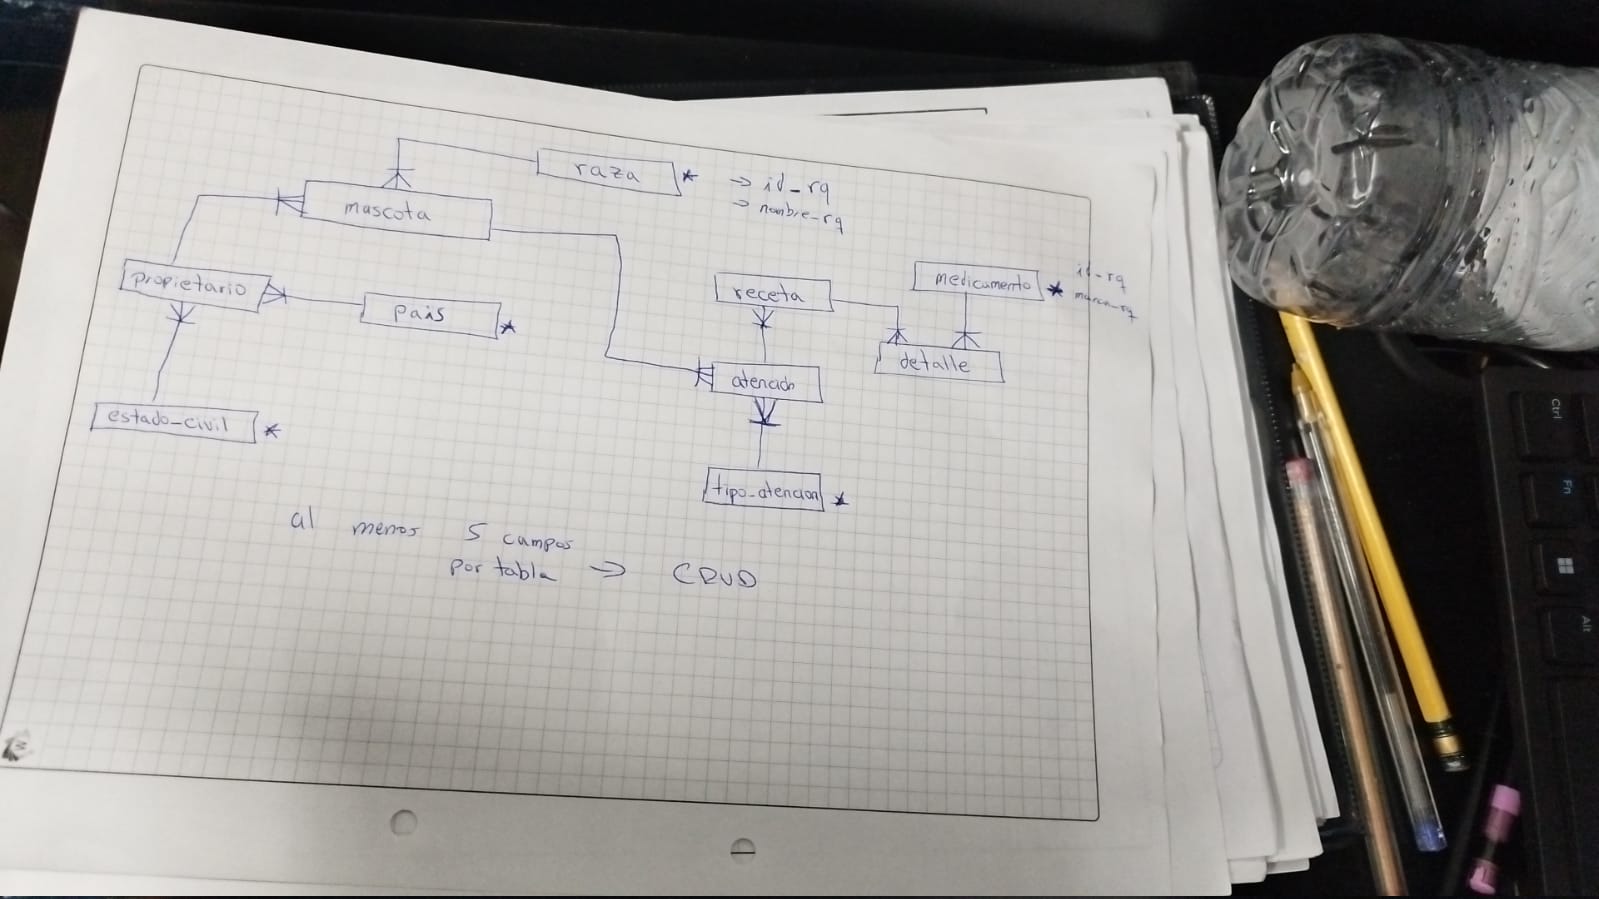 raza * → id_rq
→ nombre_rq
mascota
propietario
pais *
receta
medicamento * id_rq
marca_rq
detalle
atencion
estado_civil *
tipo_atencion *
al menos 5 campos
por tabla → CRUD
Ctrl
Fn
Alt